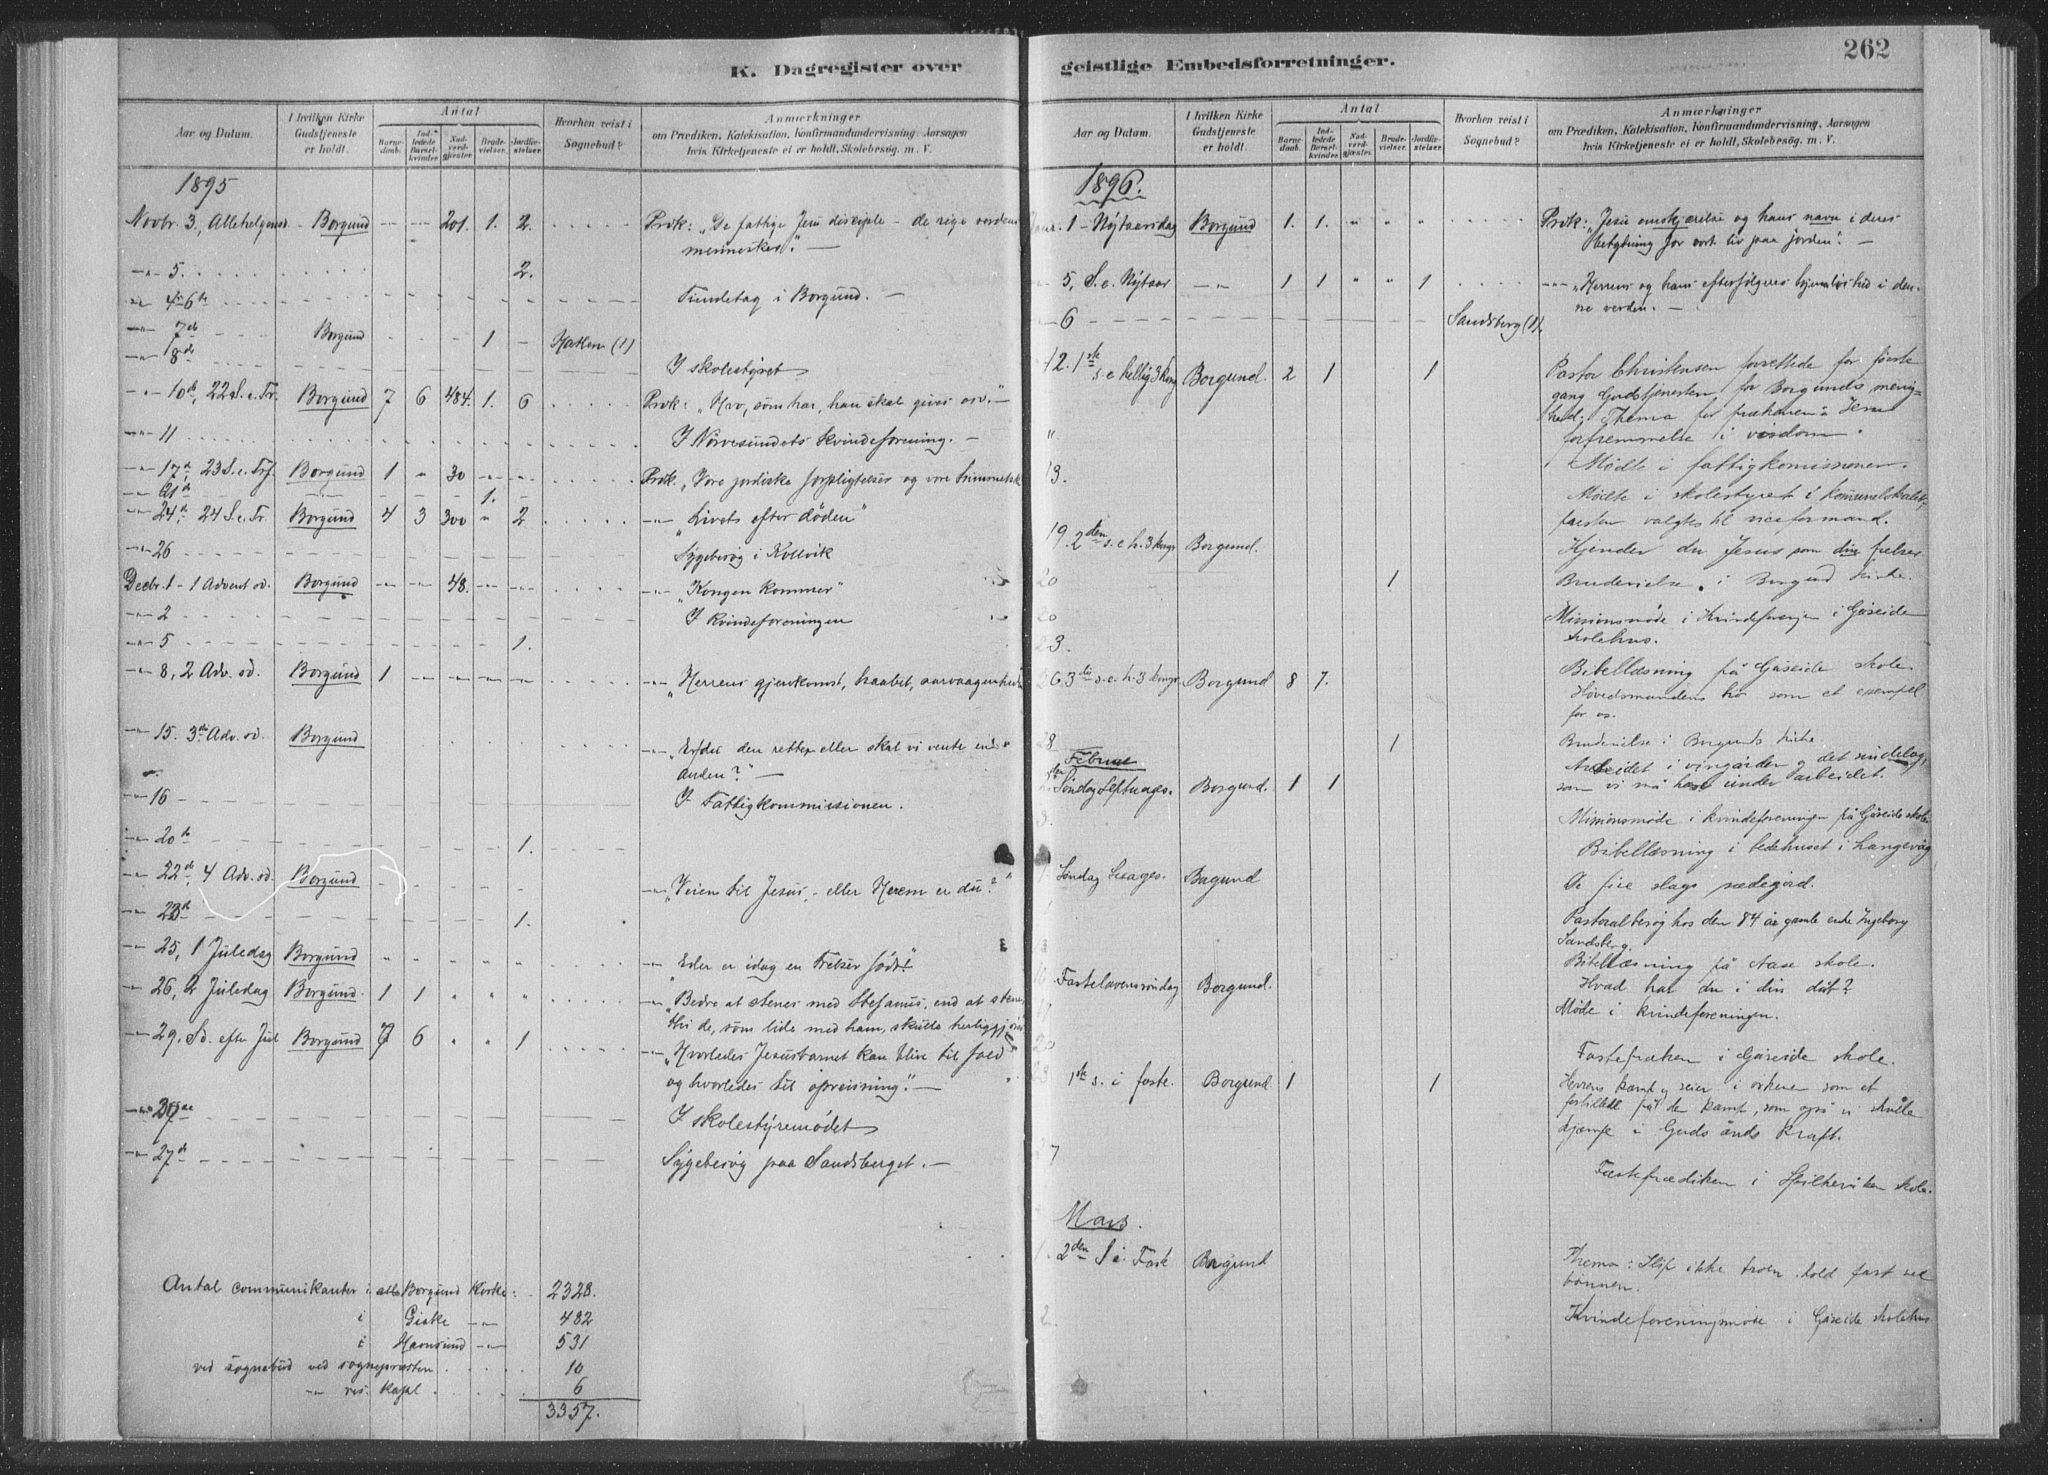 K. Dagregister over
Aar og Datum.
I hvilken Kirke Gudstjeneste er holdt.
Antal
Barnedaab.
Indledede Barselkvinder
Nadverdgjester.
Brudevielser.
Jordfæstelser.
Hvorhen reist i Sognebud?
Anmærkninger
om Prædiken, Katekisation, Konfirmandundervisning, Aarsagen
hvis Kirketjeneste ei er holdt, Skolebesøg. m. V.
1895
Novbr. 3, Allehelgensd Borgund 201. 1. 2. Prdk: „De fattige Jesu disciple – de rige verdens
mennesker." —
5. 2.
Tiendetag i Borgund. —
7de Borgund 1 Hatlen (1)
8de I skolestyret
10de, 22 S. e. Tr. Borgund 7 6 484. 1. 6 Prdk: „Hvo, som har, han skal gives osv." —
11 I Nørvesundets kvindeforening. —
17de, 23 S. e. Tr. Borgund 1 30 Prdk.
1.
24de, 24 S. e. Tr. Borgund 4 3 300 2 „Livets efter døden"
26 Sygebesøg i
Decbr. 1 – 1 Advent sd. Borgund 48. „Kongen kommer"
2 I Kvindeforeningen
5 1.
8, 2 Adv. sd. Borgund 1 „Herrens gjenkomst, haabet,
15. 3die Adv. sd. Borgund „Er du den rette, eller skal vi vente en
anden?" —
16 I Fattigkommissionen.
20de 1.
22de, 4 Adv. sd. Borgund „Veien til Jesus, – eller Hvem er du?"
1.
25, 1 Juledag Borgund „Eder er idag en Frelser født!"
26, 2 Juledag Borgund. 1 1 „Bedre at stenes med Stefanus, end at stene
thi de, som lide med ham, skulle
29. Sd. efter Jul Borgund 7 6 1 „Hvorledes Jesusbarnet kan blive til fald
og hvorledes til opreisning." —
I skolestyremødet
27de Sygebesøg paa Sandsberget. —
Antal communikanter i Borgund Kirke: 2328.
i Giske 482
i 531
ved sognebud ved sognepræsten 10
res. kapl. 6
3357.
geistlige Embedsforretninger.
262
Aar og Datum.
I hvilken Kirke Gudstjeneste er holdt.
Antal
Barnedaab.
Indledede Barselkvinder
Nadverdgjester.
Brudevielser.
Jordfæstelser.
Hvorhen reist i Sognebud?
Anmærkninger
om Prædiken, Katekisation, Konfirmandundervisning, Aarsagen
hvis Kirketjeneste ei er holdt, Skolebesøg. m. V.
1896.
1 – Nytaarsdag Borgund 1. 1. Prdk: „Jesu omskjærelse og hans navn i deres
betydning for vort liv paa jorden". —
5, S. e. Nytaar 1 1 1 „Herrens og hans efterfølgeres hjemløshed i den-
ne verden. —
6 Sandsberg (1).
12. 1ste s. e hellig 3 kong Borgund. 2 1 1 Pastor Christensen forrettede for første
gang Gudstjenesten for Borgunds menig-
hed; Thema for prækenen: Jesu
forfremmelse i visdom.
Møde i fattigkomissionen.
13. Møde i skolestyret i
valgtes til viceformand.
19. 2den s. e h. 3 konger Borgund. Kjender du Jesus som din frelser.
20 1 Brudevielse i Borgund kirke.
20 Missionsmøde i Kvindeforenigen i Gåseide
skolehus.
23. Bibellæsning på Gåseide skole.
26 3die s. e. h. 3 konger Borgund 8 7. Høvedsmandens tro som et exempel
for os.
28 1 Brudevielse i Borgunds kirke
Februar
Søndag Septuages. Borgund. 1 1 Arbeidet i vingården og det sindelag,
som vi må have under arbeidet.
Missionsmøde i kvindeforeningen på Gåseide skole
Bibellæsning i bedehuset i Langevåg
Søndag Sexages. Borgund De fire slags sædejord.
Pastoralbesøg hos den 84 år gamle enke Ingeborg
Sandsberg.
Bibellæsning på Aase skole.
16 Fastelavenssøndag Borgund. Hvad har du i din dåb?
17 Møde i kvindeforeningen.
20 Fastepræken i Gåseide skole.
23 1ste s. i faste. Borgund. 1 1 Herrens kamp og seier i ørkene som et
forbillede på den kamp, som også vi skulle
kjæmpe i Guds ånds kraft.
Fasteprædiken i Spilkeviken skole.
Mars.
2den S i. Faste Borgund Thema: Slip ikke troen, hold fast ved
bønnen.
2. Kvindeforeningsmøde i Gåseide skolehus